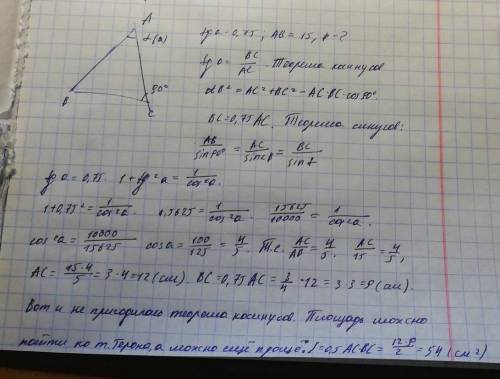 A
α(a)
tg a = 0,75 ; AB = 15, P - ?
tg a = BC/AC Теорема косинусов
B 90° C
AB² = AC² + BC² - AC·BC·cos90°.
BC = 0,75 AC. Теорема синусов:
AB/sin90° = AC/sinβ = BC/sinα
tg a = 0,75. 1 + tg²a = 1/cos²a.
1 + 0,75² = 1/cos²a. 1,5625 = 1/cos²a. 15625/10000 = 1/cos²a.
cos²a = 10000/15625 cos a = 100/125 = 4/5. Т.е. AC/AB = 4/5. AC/15 = 4/5,
AC = 15·4/5 = 3·4 = 12 (см). BC = 0,75 AC = 3/4 · 12 = 3·3 = 9 (см).
Вот и не пригодилась теорема косинусов. Площадь можно
найти по т. Герона, а можно ещё проще: S = 0,5 AC·BC = 12·9/2 = 54 (см²)